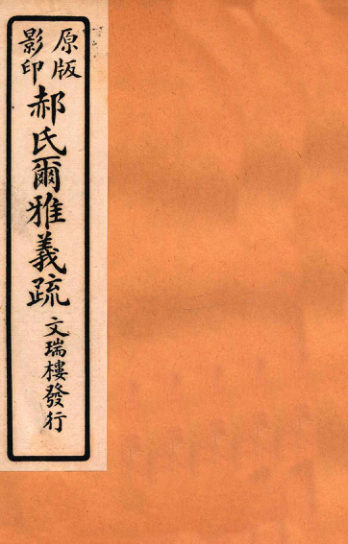 原版
影印
郝氏爾雅義疏
文瑞樓發行